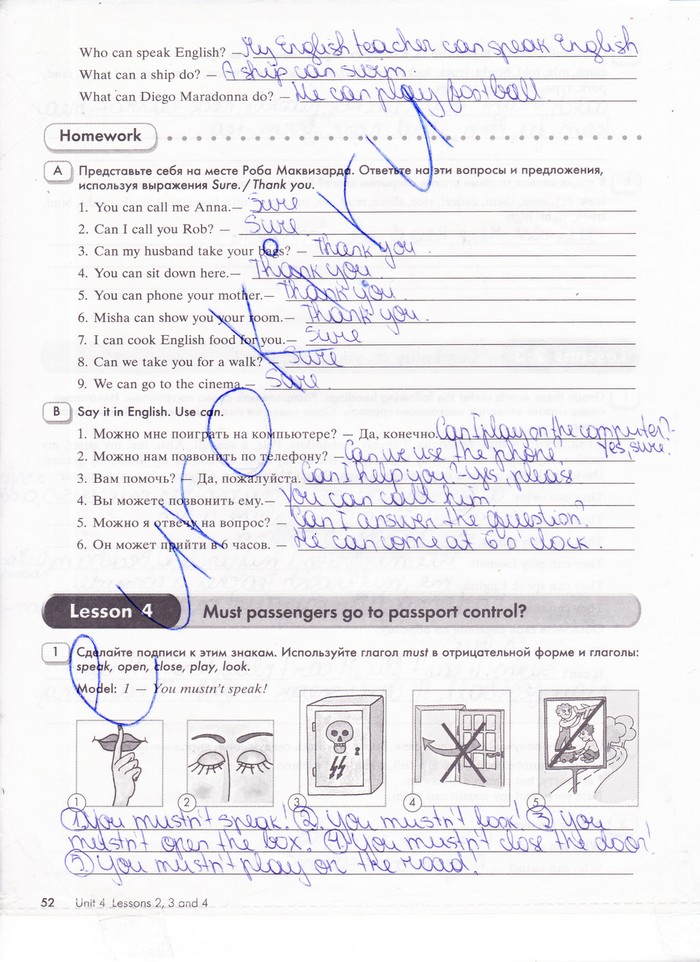 Who can speak English? – My English teacher can speak English
What can a ship do? – A ship can swim.
What can Diego Maradonna do? – He can play football
Homework
A Представьте себя на месте Роба Маквизарда. Ответьте на эти вопросы и предложения,
используя выражения Sure. / Thank you.
1. You can call me Anna.– Sure
2. Can I call you Rob? – Sure
3. Can my husband take your bags? – Thank you.
4. You can sit down here.– Thank you.
5. You can phone your mother.– Thank you.
6. Misha can show you your room.– Thank you.
7. I can cook English food for you.– Sure
8. Can we take you for a walk? – Sure
9. We can go to the cinema.– Sure.
B Say it in English. Use can.
1. Можно мне поиграть на компьютере? – Да, конечно. Can I play on the computer?-
Yes, sure.
2. Можно нам позвонить по телефону? – Can we use the phone
3. Вам помочь? – Да, пожалуйста. Can I help you? -yes, please
4. Вы можете позвонить ему.– You can call him.
5. Можно я отвечу на вопрос? – Can I answer the question?
6. Он может прийти в 6 часов. – He can come at 6 o'clock.
Lesson 4 Must passengers go to passport control?
1 Сделайте подписи к этим знакам. Используйте глагол must в отрицательной форме и глаголы:
speak, open, close, play, look.
Model: 1 – You mustn't speak!
1 2 3 4 5
① You mustn't speak! ② You mustn't look! ③ You
mustn't open the box! ④ You mustn't close the door!
⑤ You mustn't play on the road!
52 Unit 4 Lessons 2, 3 and 4